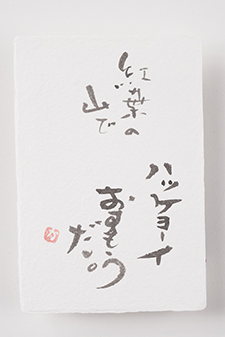 紅葉の
山で
ハッケヨーイ
おすもう
だいこう